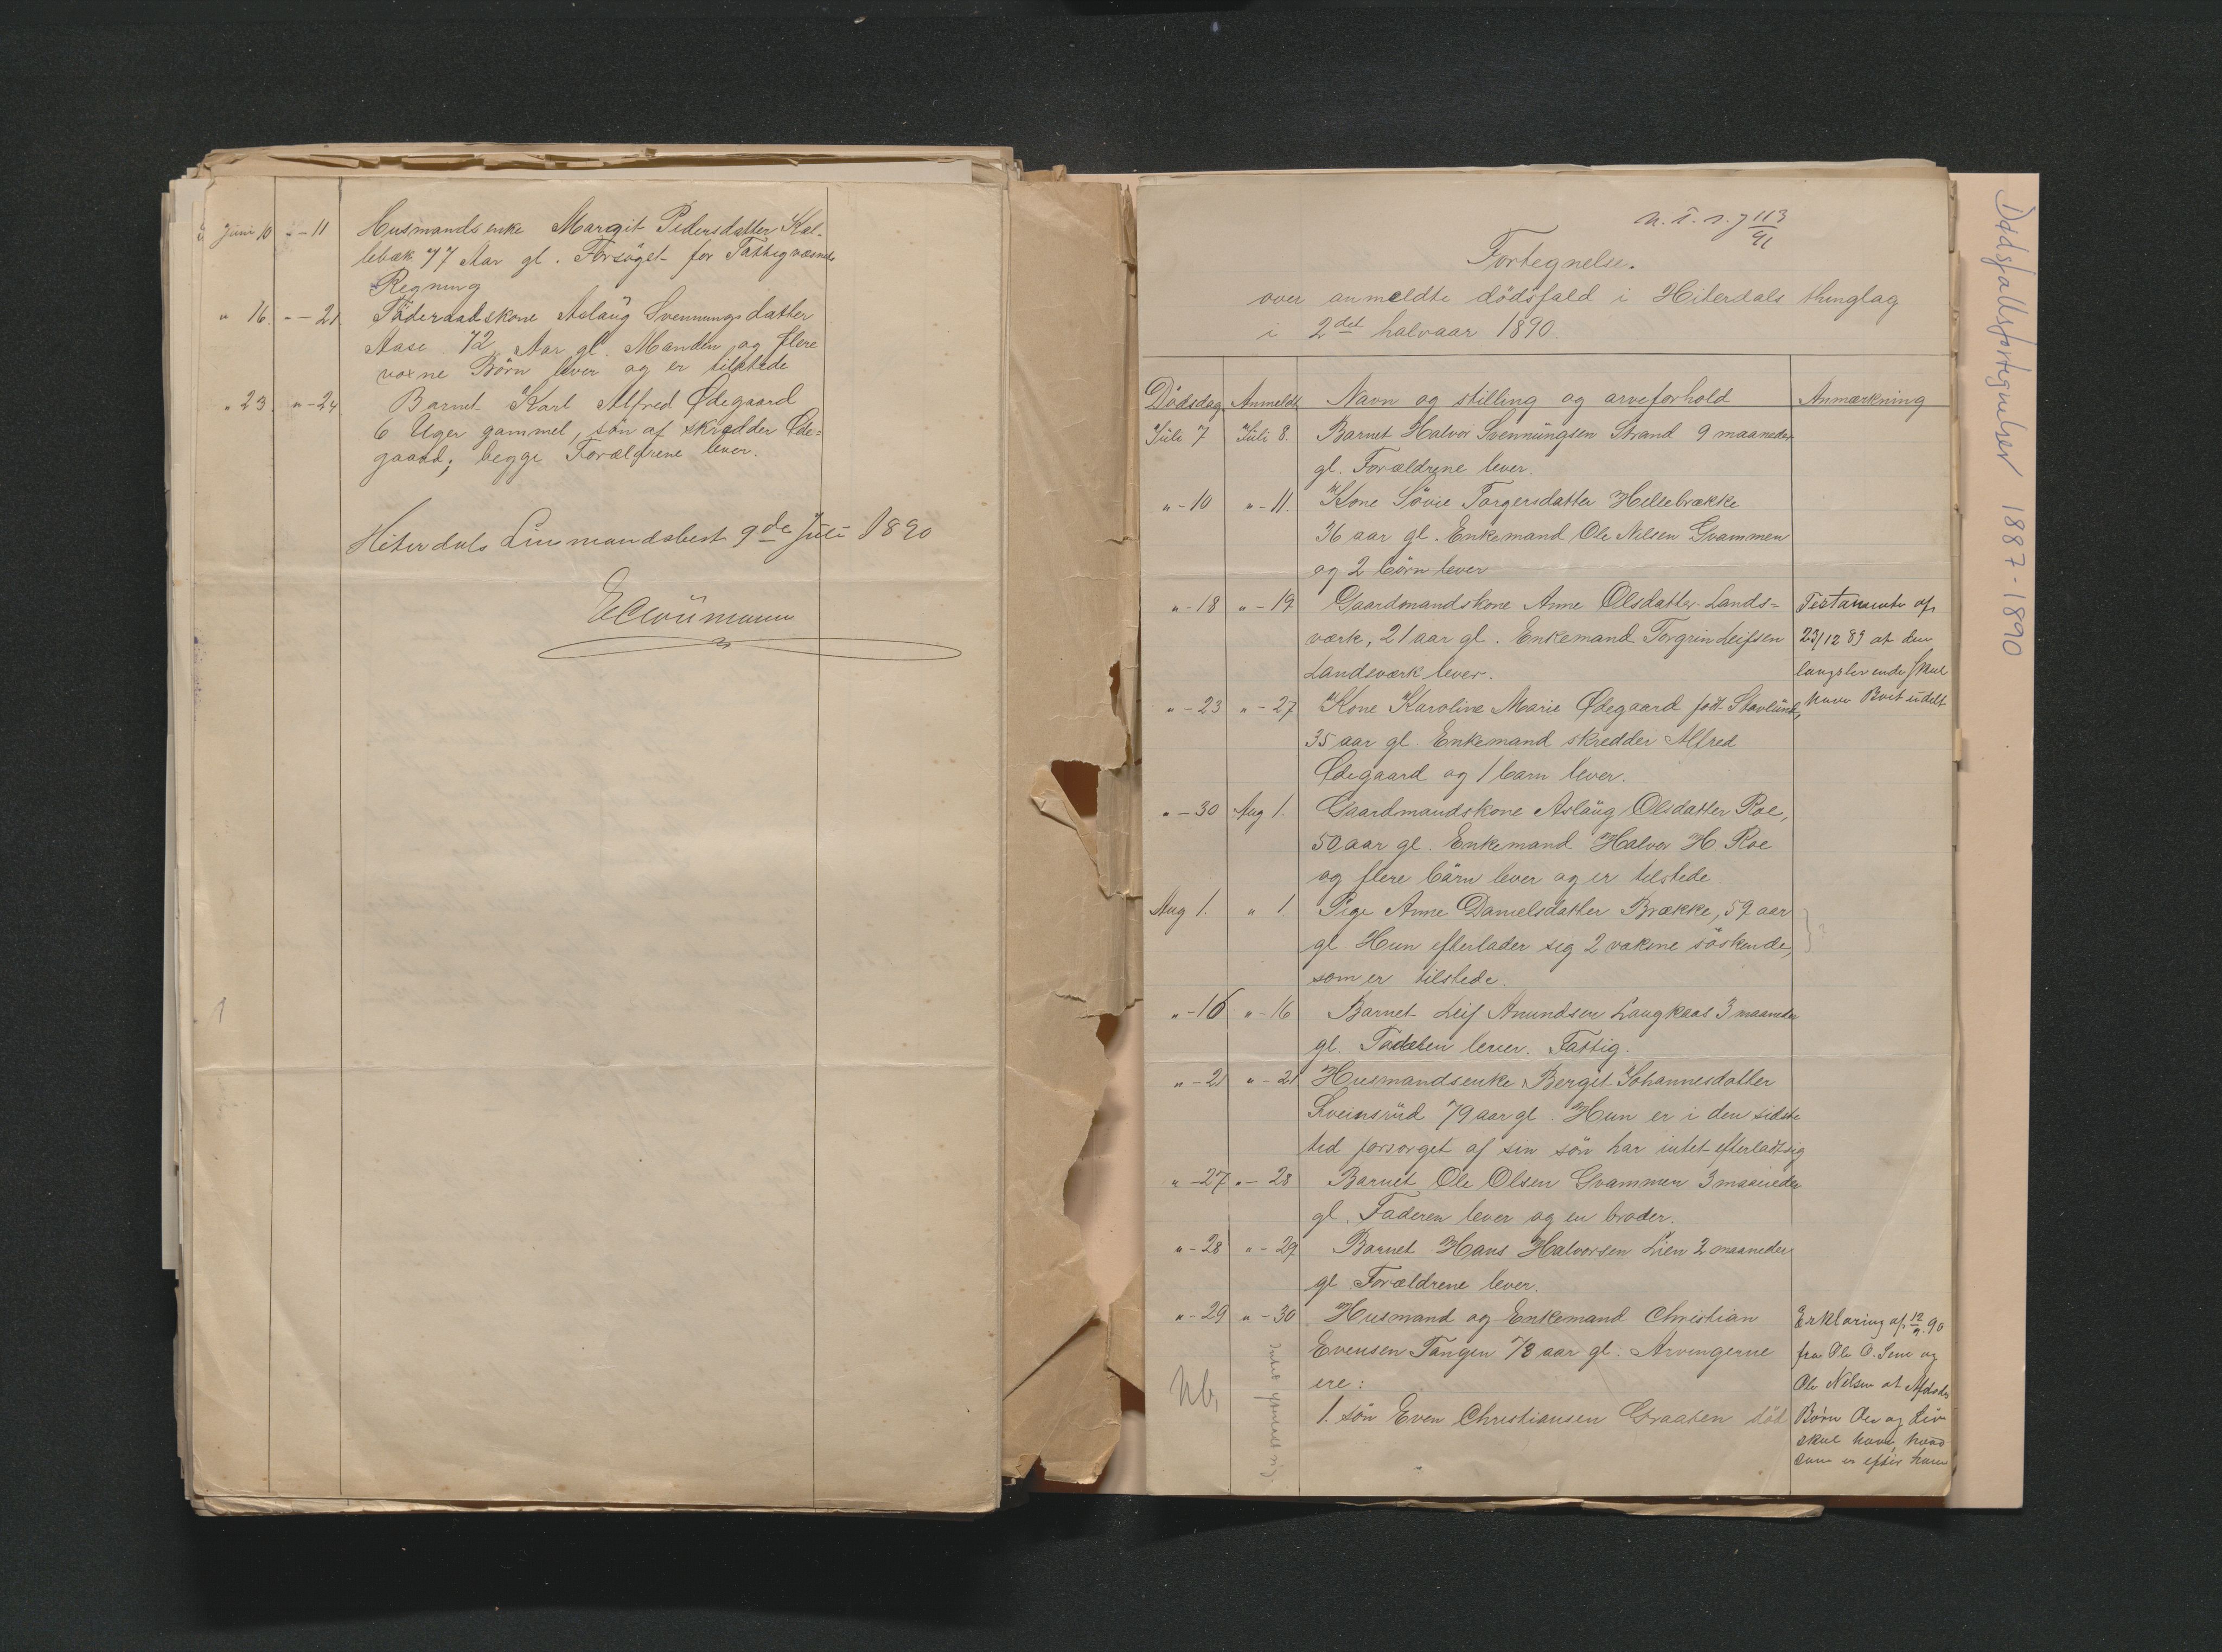 Juni 10 " - 11 Husmandsenke Margit Pedersdatter Kal-
lebæk 77 Aar gl. Forsöget for Fattigvæsnets
Regning
" 16. " - 21. Föderaadskone Aslaug Svennungsdatter
Aase 72 Aar gl. Manden og flere
voxne Börn lever og er tilstede
" 23. " - 24 Barnet Karl Alfred Ødegaard
6 Uger gammel, sön af skrædder Øde=
gaard; begge Forældrene lever.
Hiterdals Linsmandsbest 9de Juli 1890
1
113
91
Fortegnelse.
over anmeldte dödsfald i Hiterdals thinglag
i 2det halvaar 1890.
Dödsdag Anmeldt Navn og stilling og arveforhold Anmærkning
Juli 7 Juli 8. Barnet Halvor Svennungsen Strand 9 maaneder
gl. Forældrene lever.
" - 10 " - 11. Kone Sövie Torgersdatter Hellebrække
36 aar gl. Enkemand Ole Nilsen Gvammen
og 2 börn lever
" - 18 " - 19 Gaardmandskone Anne Olsdatter Lands=
værk, 21 aar gl. Enkemand Torgrim Leifsen
Landsværk lever.
Testamente af
23/12 89 at den
længstlevende skal
have Boet udelt
" - 23 " - 27 Kone Karoline Marie Ødegaard föt Stavlund,
35 aar gl. Enkemand skredder Alfred
Ødegaard og 1 barn lever.
" - 30 Aug 1. Gaardmandskone Aslaug Olsdatter Roe,
50 aar gl. Enkemand Halvor H. Roe
og flere börn lever og er tilstede
Aug 1. " 1. Pige Anne Danielsdatter Brække, 59 aar
gl. Hun efterlader sig 2 voksne söskende, ?
som er tilstede.
" - 16 " - 16 Barnet Leif Amundsen Langkaas 3 maaneder
gl. Faderen lever. Fattig.
" - 21 " - 21 Husmandsenke Bergit Johannesdatter
Sveinsrud 79 aar gl. Hun er i den sidste
tid forsorget af sin sön har intet efterladt sig
" - 27 " - 28 Barnet Ole Olsen Gvammen 3 maaneder
gl. Faderen lever og en broder.
" - 28 " - 29 Barnet Hans Halvorsen Lien 2 maaneder
gl Forældrene lever.
" - 29 " - 30 Husmand og Enkemand Christian
Evensen Tangen 78 aar gl. Arvingerne
ere:
1. sön Even Christiansen Graaten död
Nb.
Intet efterladt sig.
Erklæring af 12/9 90
fra Ole O. Sem og
Ole Nilsen at Afdödes
Börn Ole og Liv
skal have, hvad
som er efter ham
Dødsfallsfortegnelser 1887-1890